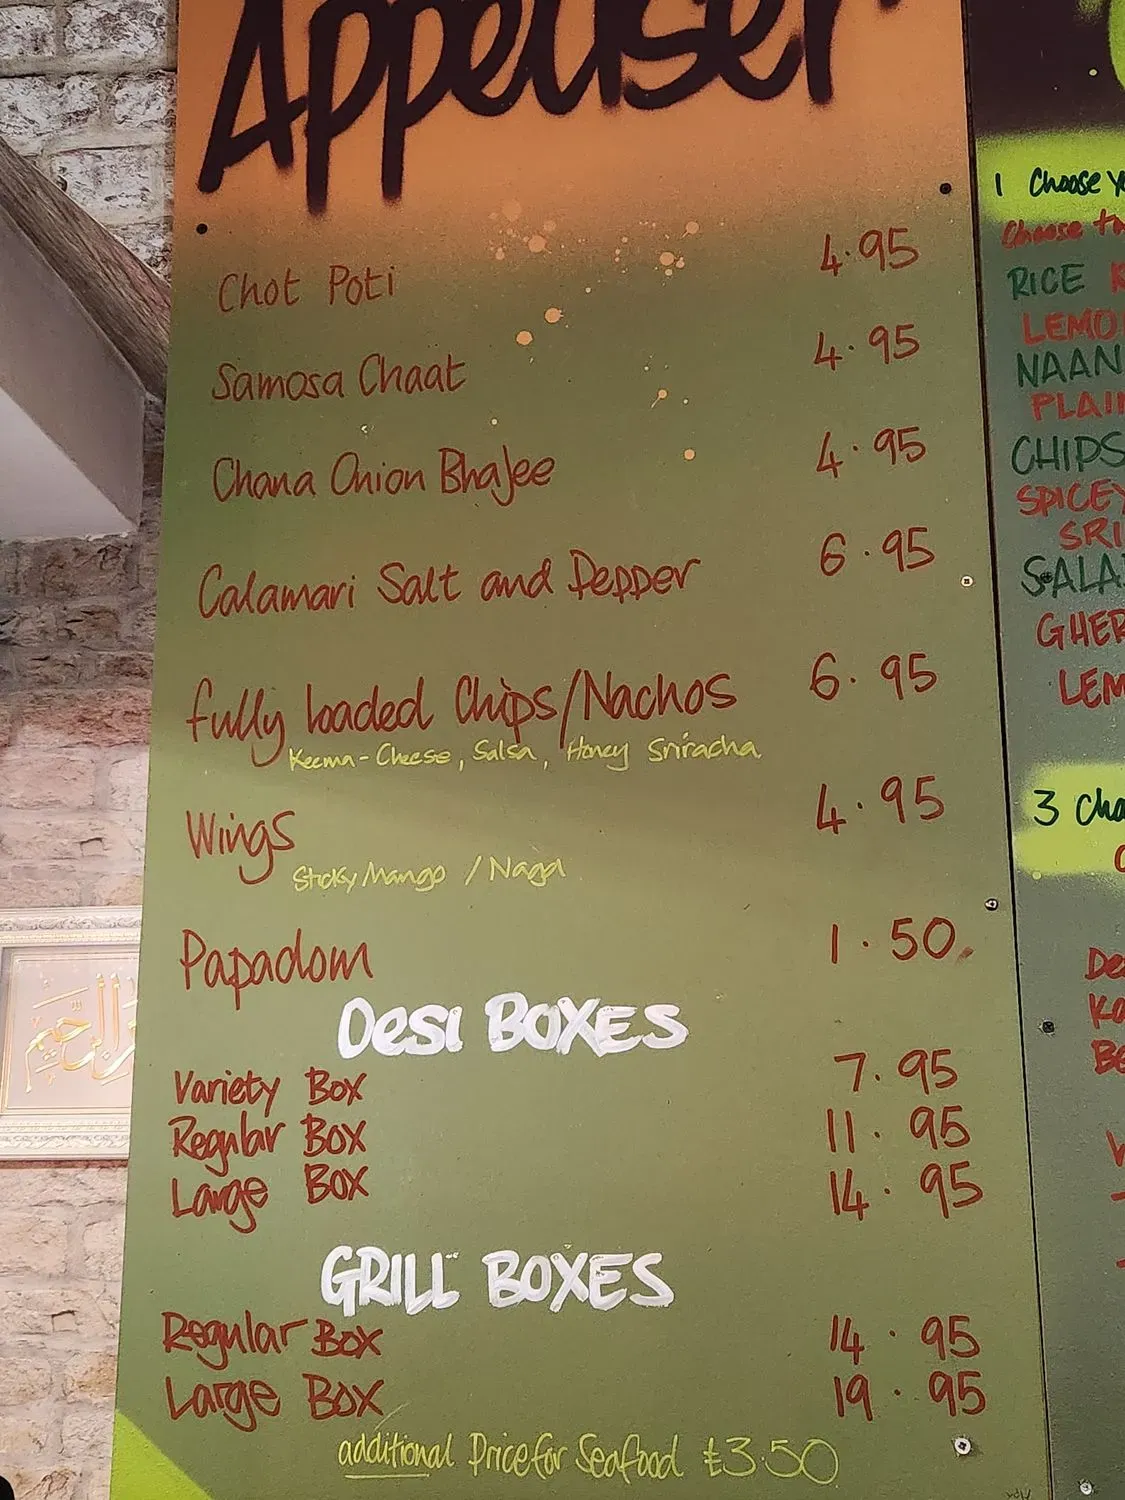 Appetiser
Chot Poti 4.95
Samosa Chaat 4.95
Chana Onion Bhajee 4.95
Calamari Salt and Pepper 6.95
fully loaded Chips/Nachos 6.95
Keema-Cheese, Salsa, Honey Sriracha
Wings 4.95
Sticky Mango / Naga
Papadom 1.50
Desi BOXES
Variety Box 7.95
Regular Box 11.95
Large Box 14.95
GRILL BOXES
Regular Box 14.95
Large Box 19.95
additional Price for Seafood £3.50
1 Choose
Choose
RICE
NAAN
PLAIN
CHIPS
SPICEY
3
بسم الله الرحمن الرحيم